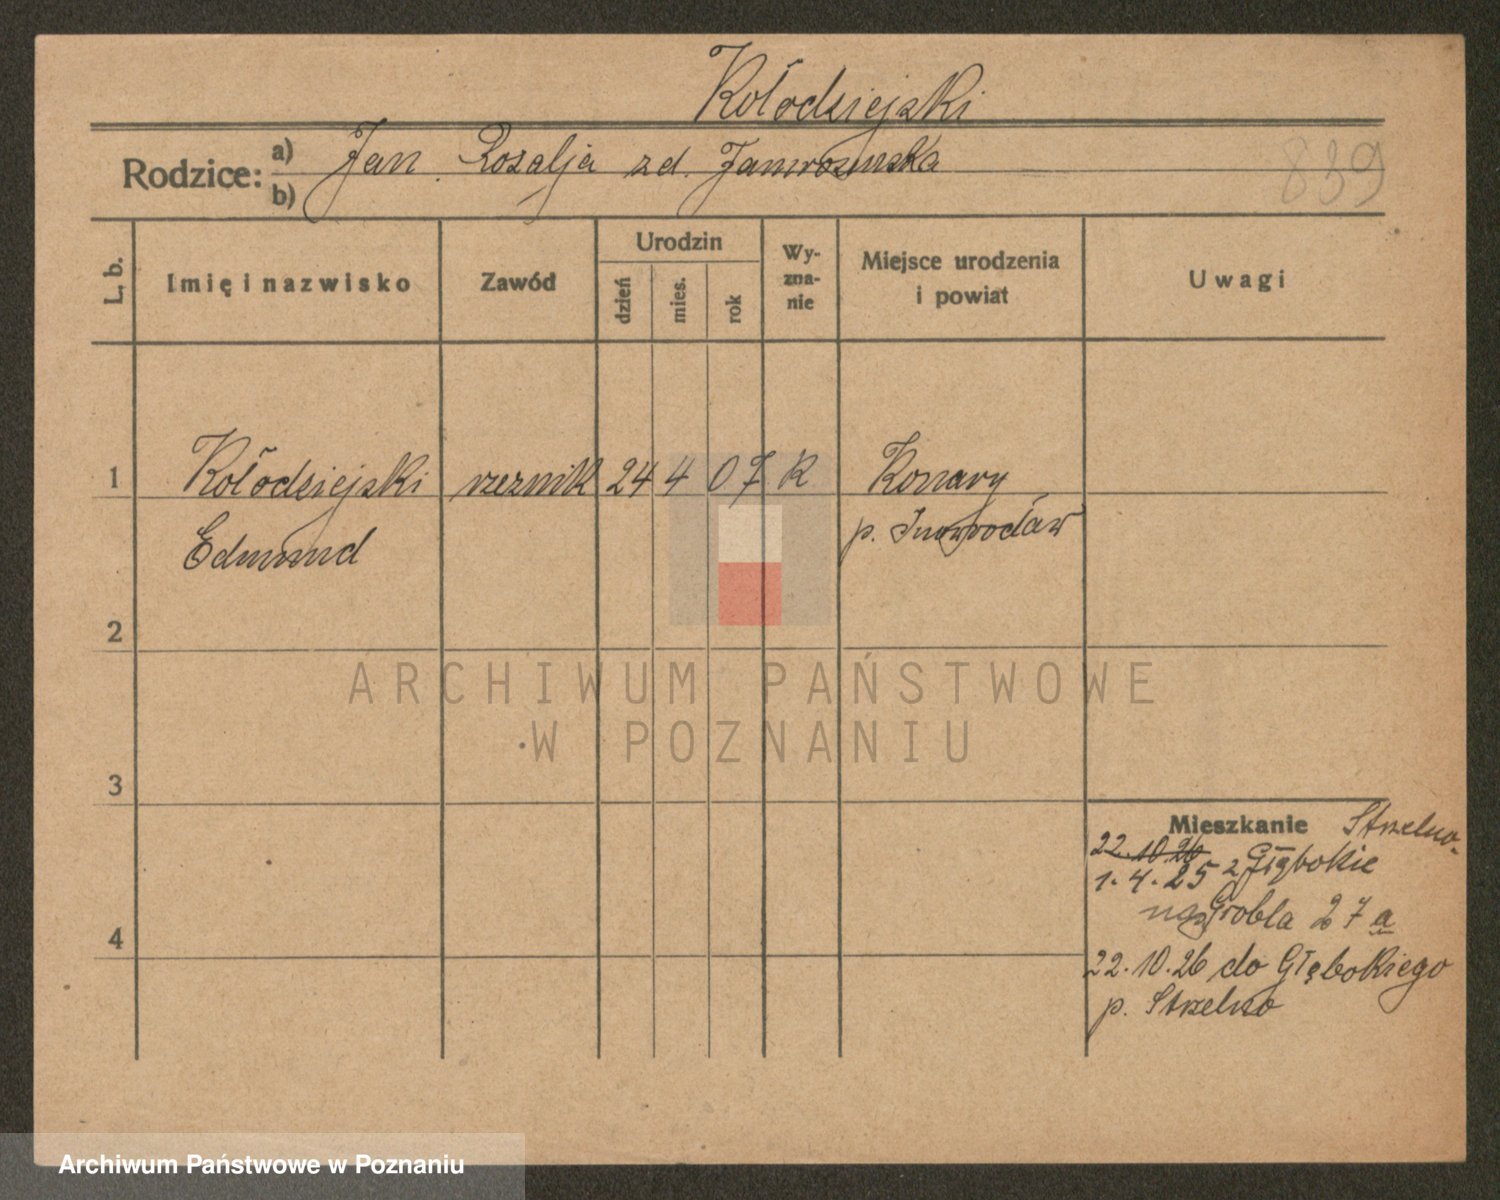 Kołodziejski
Rodzice: a) b) Jan Rozalja zd.
839
L. b.
Imię i nazwisko
Zawód
Urodzin
dzień
mies.
rok
Wy-
zna-
nie
Miejsce urodzenia
i powiat
Uwagi
1 Kołodziejski rzeznik 24 4 07 K Konary
Edmund p. Inowrocław
2
ARCHIWUM PAŃSTWOWE
W POZNANIU
3
Mieszkanie Strzelno
22.10.26
1.4.25 z Głębokie
Grobla 27 a
4
22.10.26 do Głębokiego
p. Strzelno
Archiwum Państwowe w Poznaniu